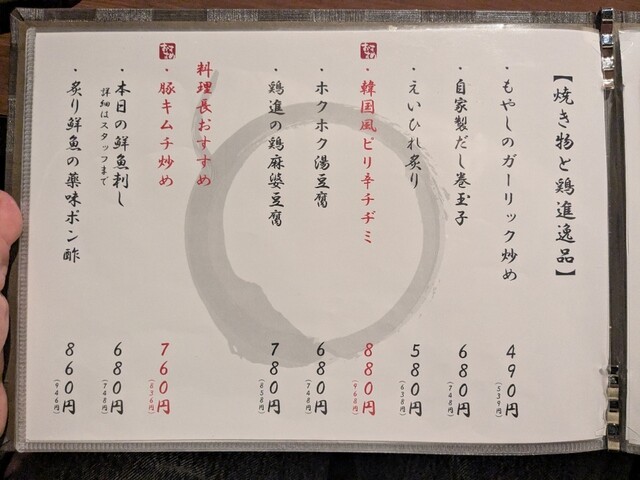 【焼き物と鶏進逸品】
・もやしのガーリック炒め 490円(539円)
・自家製だし巻玉子 680円(748円)
・えいひれ炙り 580円(638円)
・韓国風ピリ辛チヂミ 880円(968円)
・ホクホク湯豆腐 680円(748円)
・鶏進の鶏麻婆豆腐 780円(858円)
料理長おすすめ
・豚キムチ炒め 760円(836円)
・本日の鮮魚刺し 680円(748円)
詳細はスタッフまで
・炙り鮮魚の薬味ポン酢 860円(946円)